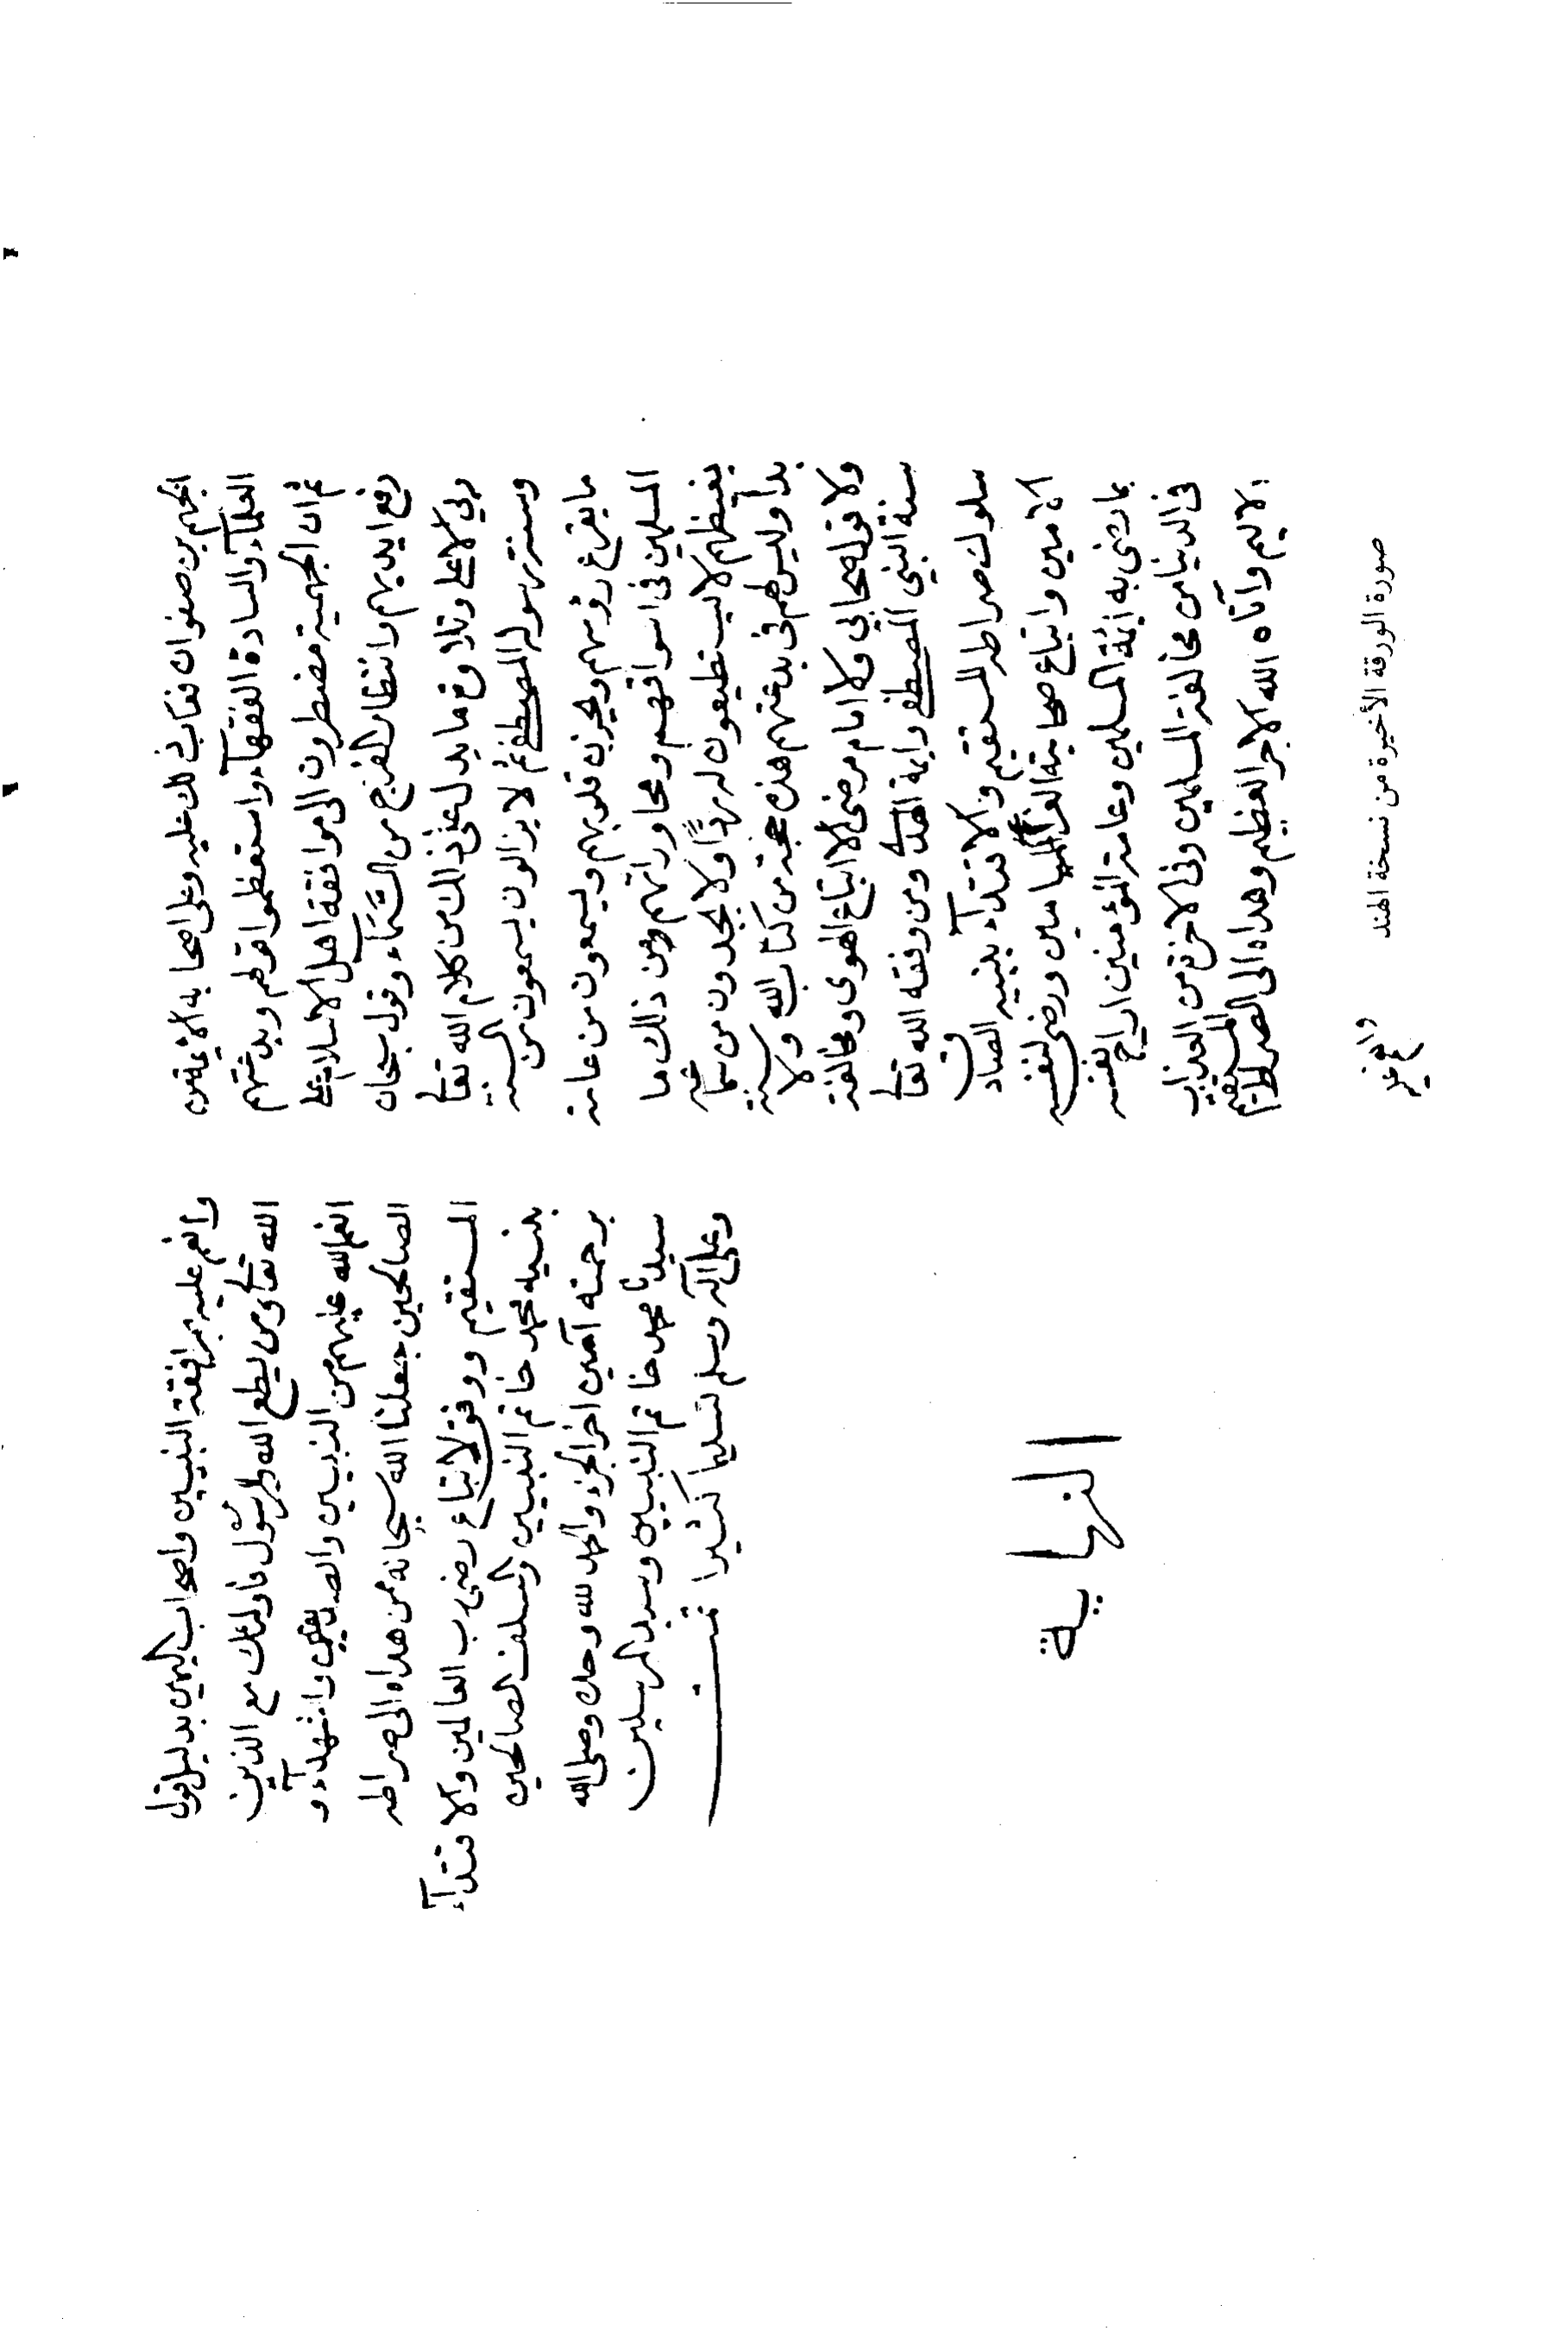 الجهم بن صفوان فعاب ذلك عليه وعلى اصحابه الائمة من
العلمآء والسادة الفقهآء واستعظموا قولهم وبدعتهم
ثم ان الجهمية مضطرون الى موافقة اهل الاسلام على
رفع ايديهم وانتظار الفرج من السَّمآء وقول سبحان
ربي الاعلى وتلاوة ما يدل على ذلك من كلام الله تعا
وسنة رسوله المصطفى ثم لا يزالون يسمعون من السنة
ما يقرع رؤسهم ويحزن قلوبهم ويسمعون من عامة
المسلمين فى اسواقهم ومحاوراتهم من ذلك ما
يغيظهم لا يستطيعون له ردًّا ولا يجدون من سماعه
بدا وليس لهم فى بدعتهم هذه حجة من كتاب الله ولا سنة
ولا قول صحابي ولا امام مرضى الا اتباع الهوى ومخالفة
سنة النبي المصطفى وايمة الهدى ومن وفقه الله تعا
سلوك صراطه المستقيم والاقتدآء بنبيه الصادق
الامين واتباع صحابته الغر الميامين ورضى لنفسه
بما رضى به ائمة المسلمين وعامة المؤمنين اراح نفسه
فى الدنيا من مخالفة المسلمين وفى الاخرة من العذاب
الاليم وآتاه الله الاجر العظيم وهداه الى الصراط المستقيم
وانعم عليه
صورة الورقة الأخيرة من نسخة الهند
وانعم عليه بمرافقة النبيين واصحاب اليمين بدليل قول
الله تعالى ومن يطع الله والرسُول فاولئك مع الذين
انعم الله عليهم من النبيين والصديقين والشهدآء و
الصالحين جعلنا الله سبحانه من هداه الى صراطه
المستقيم ووفق لاتباع رضى رب العالمين والاقتدآء
بنبيه محمد خاتم النبيين والسلف الصالحين
برحمته آمين اخر الجزء والحمد لله وحده وصلى الله
سيدنا محمد خاتم النبيين وسيد المرسلين
وعلى اله وسلم تسليما كثيرا تمت
النهاية